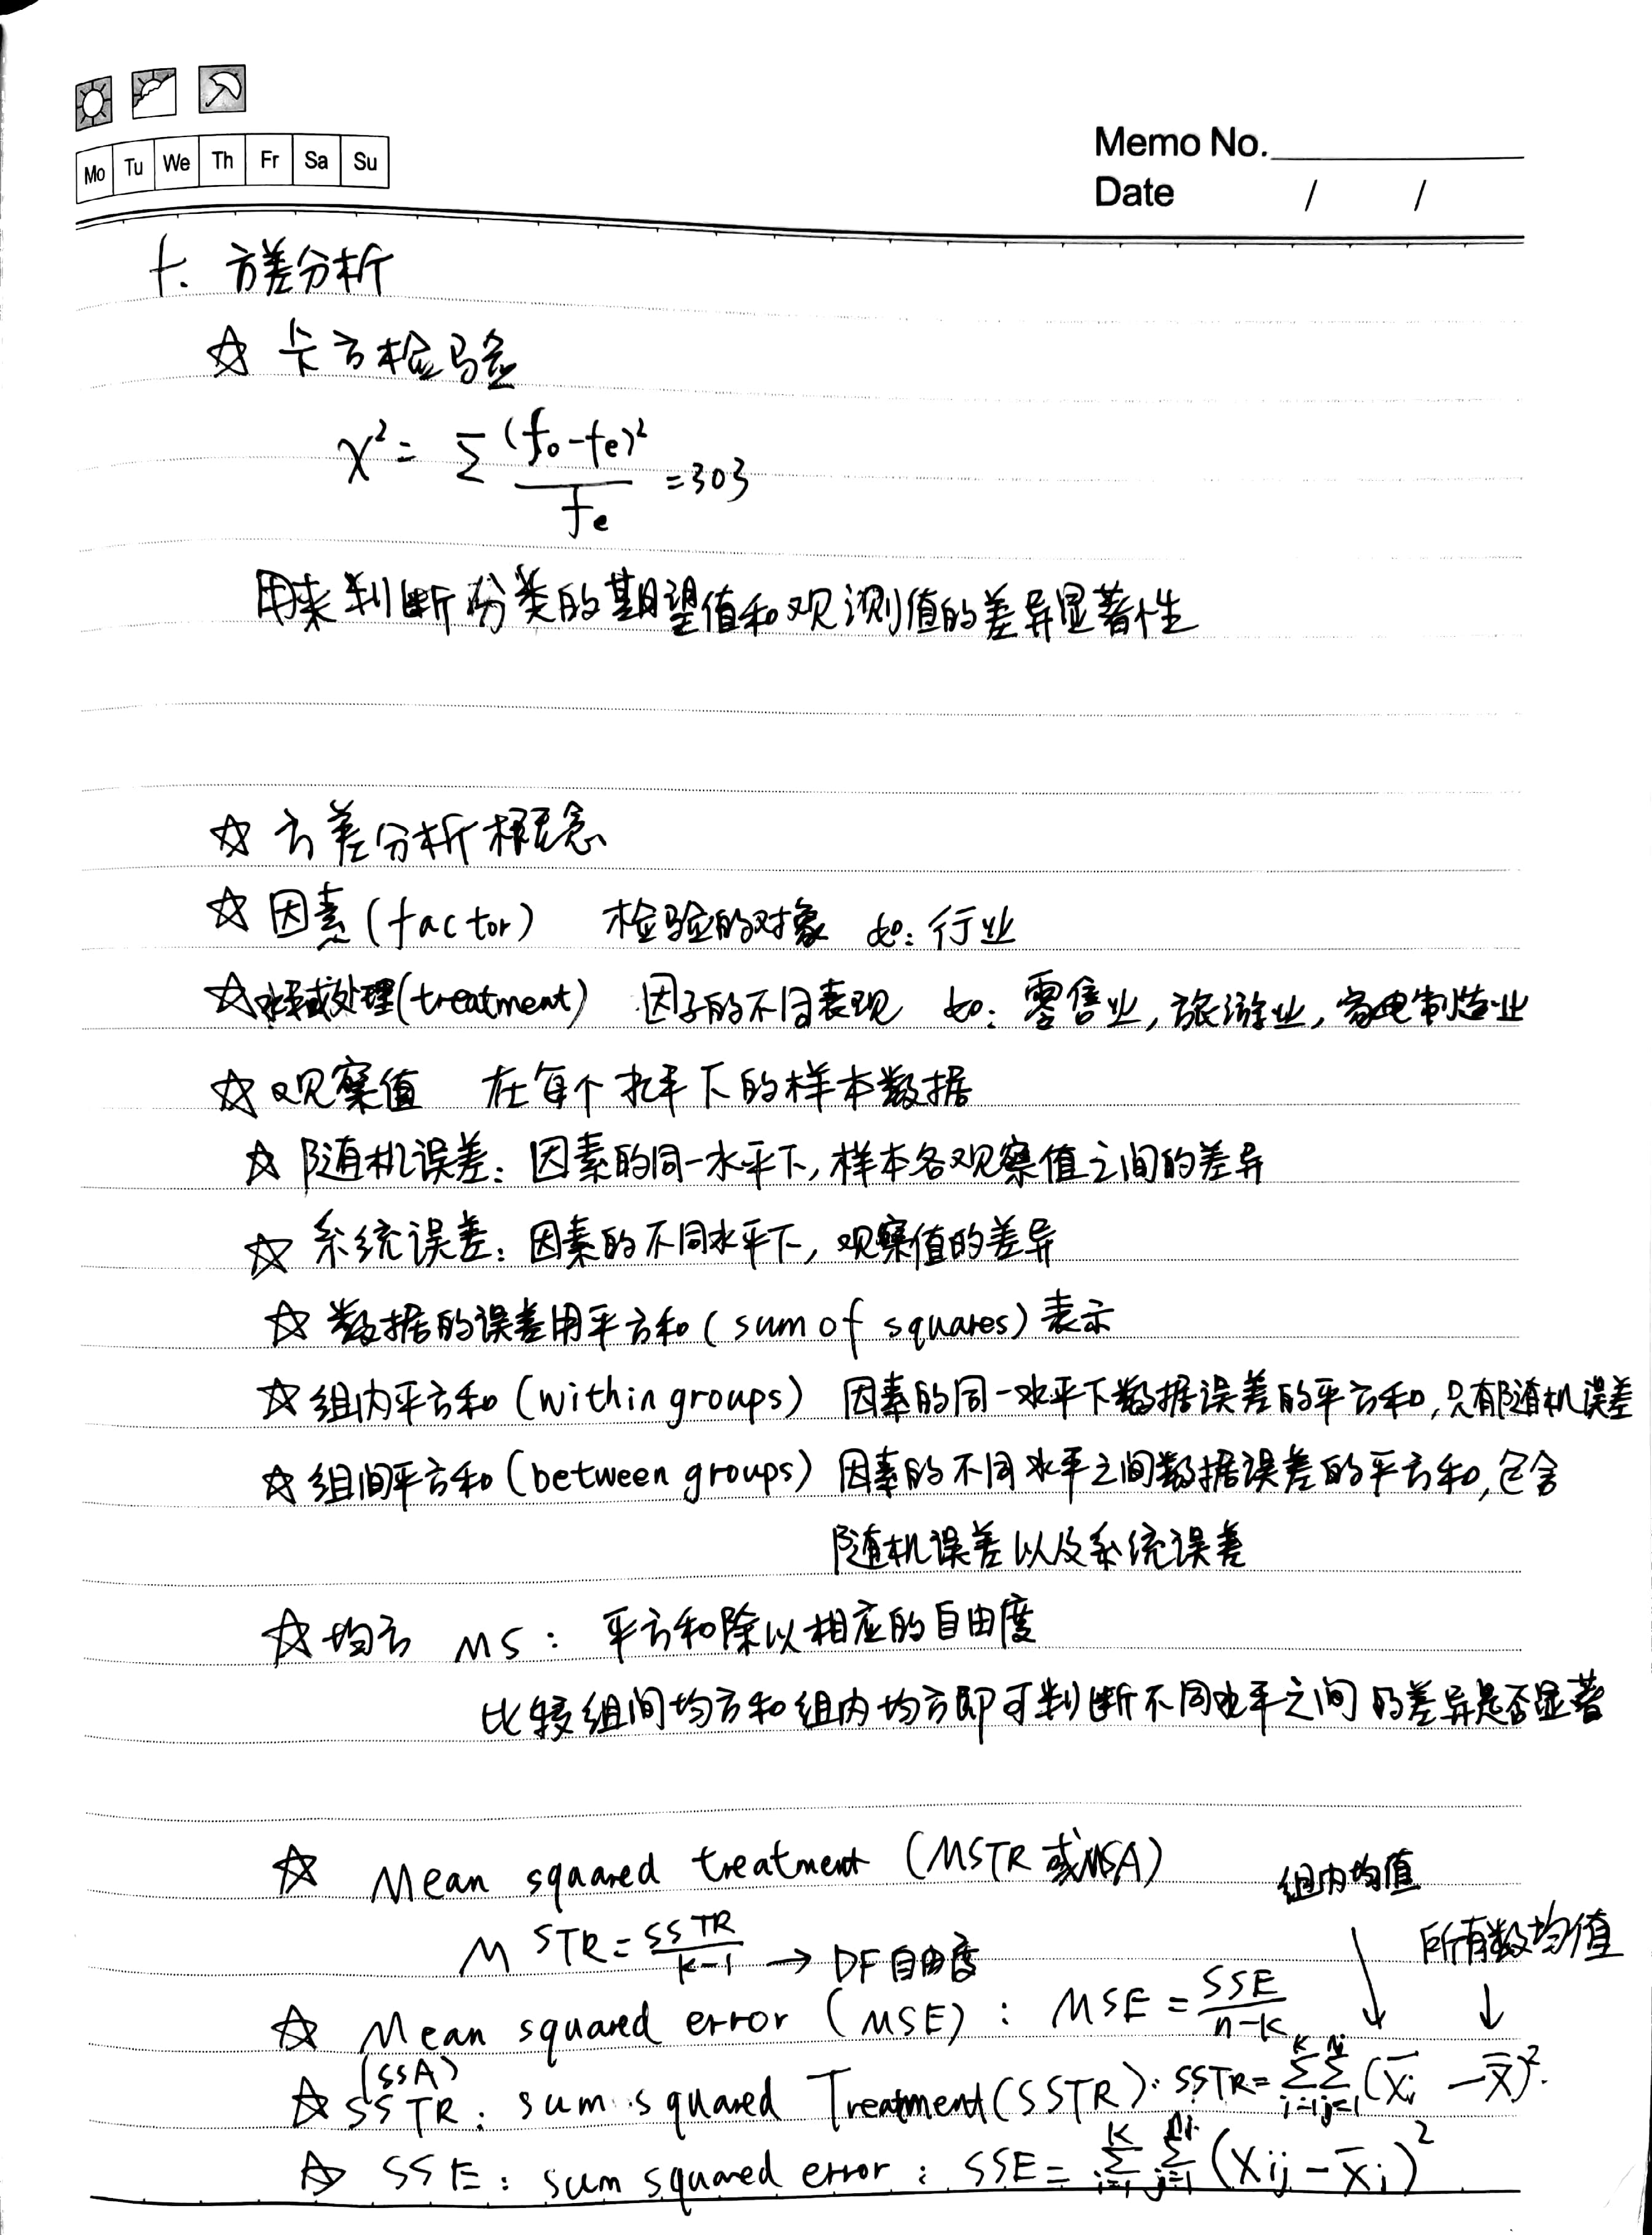 Mo Tu We Th Fr Sa Su
Memo No.
Date / /
十. 方差分析
☆ 卡方检验
χ² = Σ (fo-fe)² / fe = 303
用来判断分类的期望值和观测值的差异显著性
☆ 方差分析概念
☆ 因素(factor) 检验的对象 如: 行业
☆ 水平或处理(treatment) 因子的不同表现 如: 零售业, 旅游业, 家电制造业
☆ 观察值 在每个水平下的样本数据
☆ 随机误差: 因素的同一水平下, 样本各观察值之间的差异
☆ 系统误差: 因素的不同水平下, 观察值的差异
☆ 数据的误差用平方和(sum of squares)表示
☆ 组内平方和(within groups) 因素的同一水平下数据误差的平方和, 只有随机误差
☆ 组间平方和(between groups) 因素的不同水平之间数据误差的平方和, 包含
随机误差以及系统误差
☆ 均方 MS: 平方和除以相应的自由度
比较组间均方和组内均方即可判断不同水平之间的差异是否显著
☆ Mean squared treatment (MSTR或MSA)
组内均值
MSTR = SSTR / k-1 → DF自由度
所有数均值
☆ Mean squared error (MSE): MSE = SSE / n-k
(SSA)
☆ SSTR: sum squared Treatment(SSTR): SSTR = Σ(i=1, k) Σ(j=1, ni) (x̄i - x̿)².
☆ SSE: sum squared error: SSE = Σ(i=1, K) Σ(j=1, ni) (Xij - x̄i)²